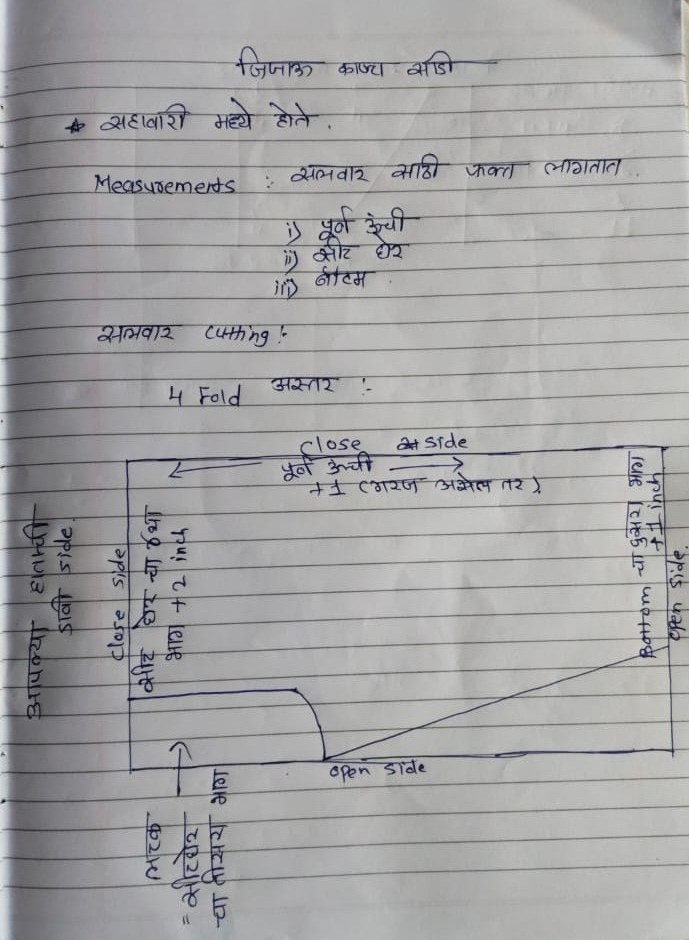 जिजाऊ काष्टा साडी
* सहावारी मध्ये होते.
Measurements : सलवार साठी फक्त लागतात.
i) पूर्ण उंची
ii) सीट घेर
iii) बॉटम
सलवार cutting :-
4 Fold अस्तर :-
close side
पूर्ण उंची
+1 (गरज असेल तर)
आपल्या हाताची
डावी side.
close side
सीट घेर चा ४था
भाग + 2 inch
Bottom चा दुसरा भाग
+1 inch
open side.
open side
लटक
= सीट घेर
चा तीसरा भाग